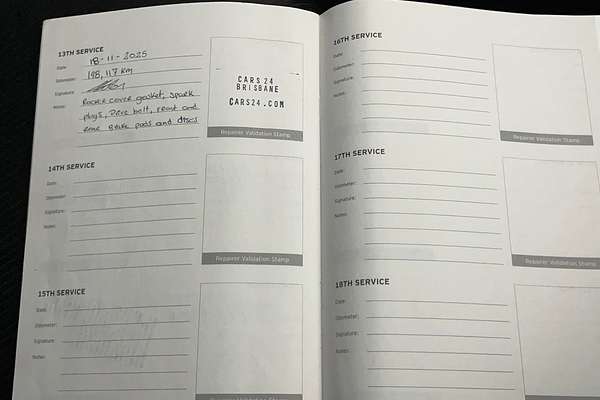 13TH SERVICE
Date: 18-11-2025
Odometer: 198,117 km
Signature:
Notes: Rocker cover gasket, spark
plugs, Drive belt, Front and
Rear Brake pads and discs
CARS24
BRISBANE
CARS24.COM
Repairer Validation Stamp
14TH SERVICE
Date:
Odometer:
Signature:
Notes:
Repairer Validation Stamp
15TH SERVICE
Date:
Odometer:
Signature:
Notes:
Repairer Validation Stamp
16TH SERVICE
Date:
Odometer:
Signature:
Notes:
Repairer Validation Stamp
17TH SERVICE
Date:
Odometer:
Signature:
Notes:
Repairer Validation Stamp
18TH SERVICE
Date:
Odometer:
Signature:
Notes: